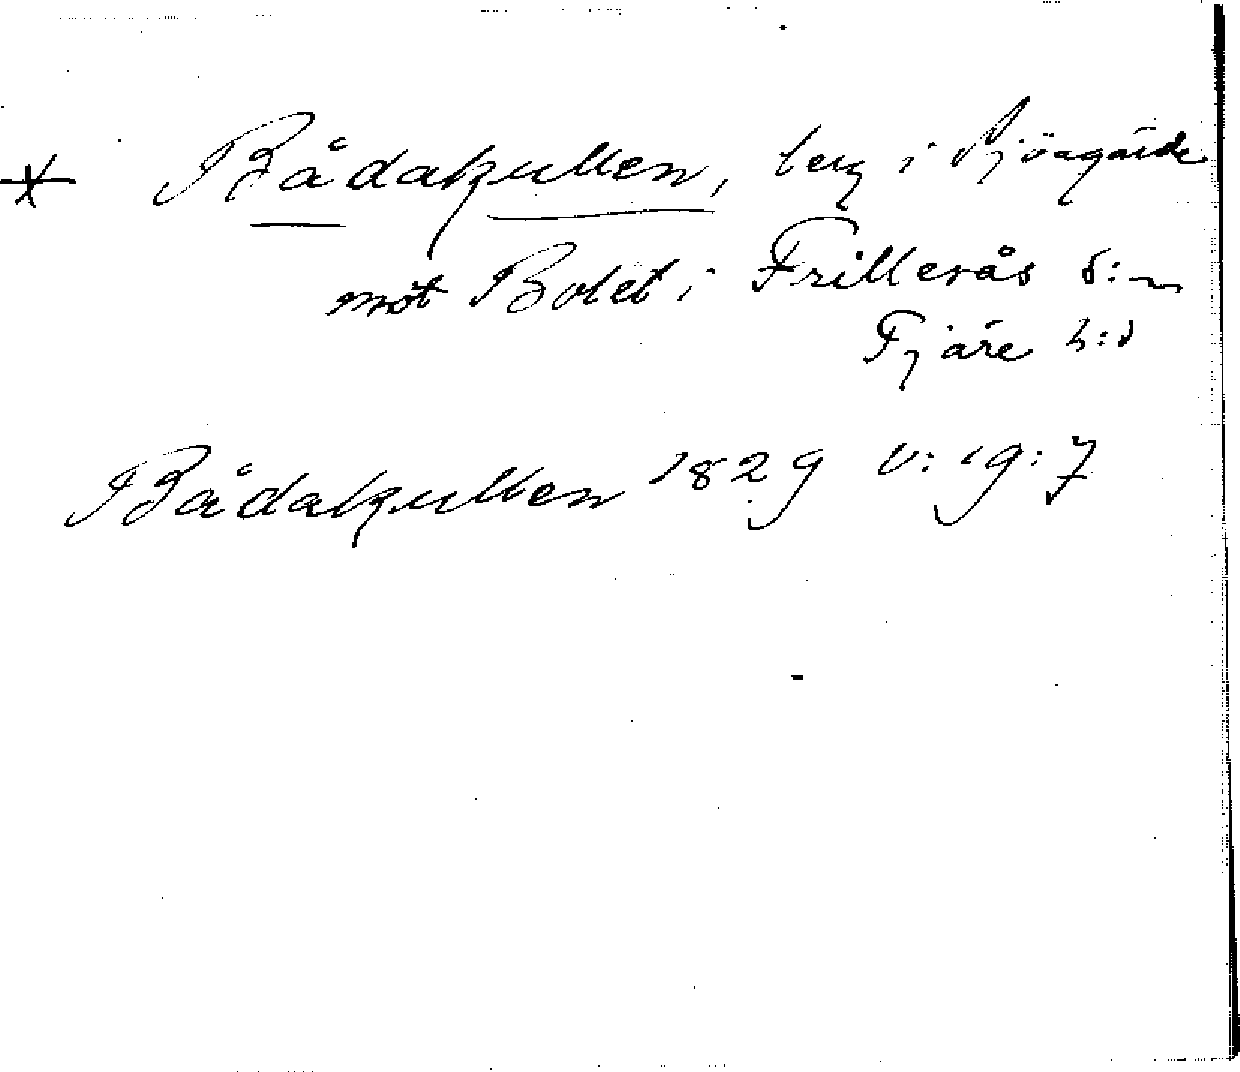 * Bådakullen, berg i Sjöagärde
mot Bolet i Frillesås s:n
Fjäre h:d
Bådakullen 1829 V: 19: 7